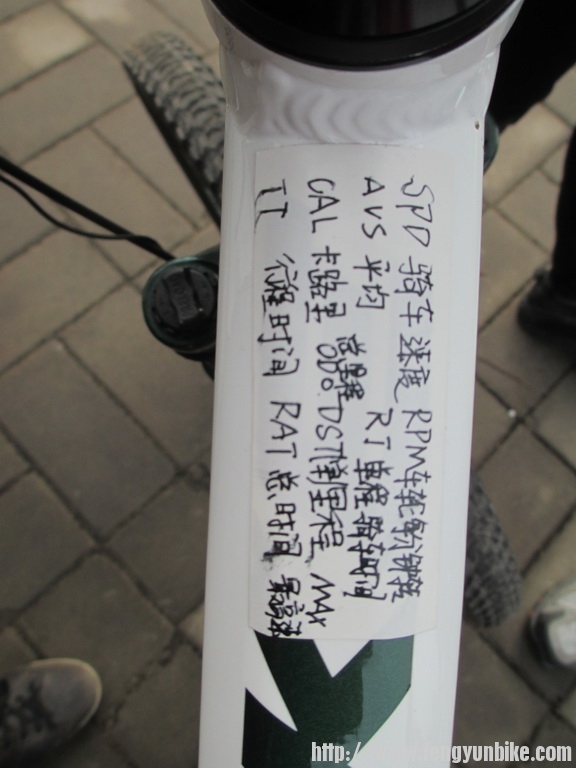 SPD 骑车速度 RPM车轮每分钟转
AVS 平均 RT 单程骑车时间
CAL 卡路里 总里程 ODO. DST单里程 MAX
TT 行程时间 RAT 总时间 最高速
http://www.fengyunbike.com